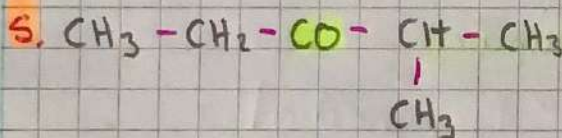 5. CH3 - CH2 - CO - CH - CH3
CH3